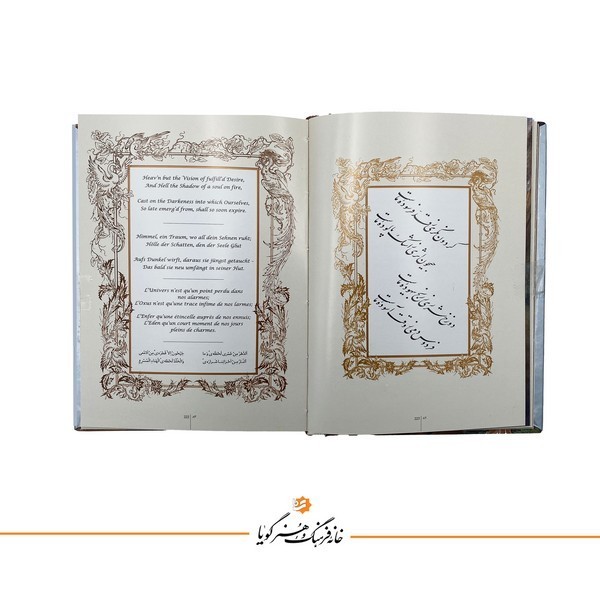 Heav'n but the Vision of fulfill'd Desire,
And Hell the Shadow of a soul on fire,
Cast on the Darkness into which Ourselves,
So late emerg'd from, shall so soon expire.
Himmel, ein Traum, wo all dein Sehnen ruht;
Hölle der Schatten, den der Seele Glut
Aufs Dunkel wirft, daraus sie jüngst getaucht -
Das bald sie neu umfängt in seiner Hut.
L'Univers n'est qu'un point perdu dans
nos alarmes;
L'Oxus n'est qu'une trace infime de nos larmes;
L'Enfer qu'une étincelle auprès de nos ennuis;
L'Eden qu'un court moment de nos jours
pleins de charmes.
گردون فرسوده ماست
جیحون اثری ز اشک پالوده ماست
دوزخ شرری ز رنج بیهوده ماست
فردوس دمی ز وقت آسوده ماست
خانه فرهنگ و هنر گویا